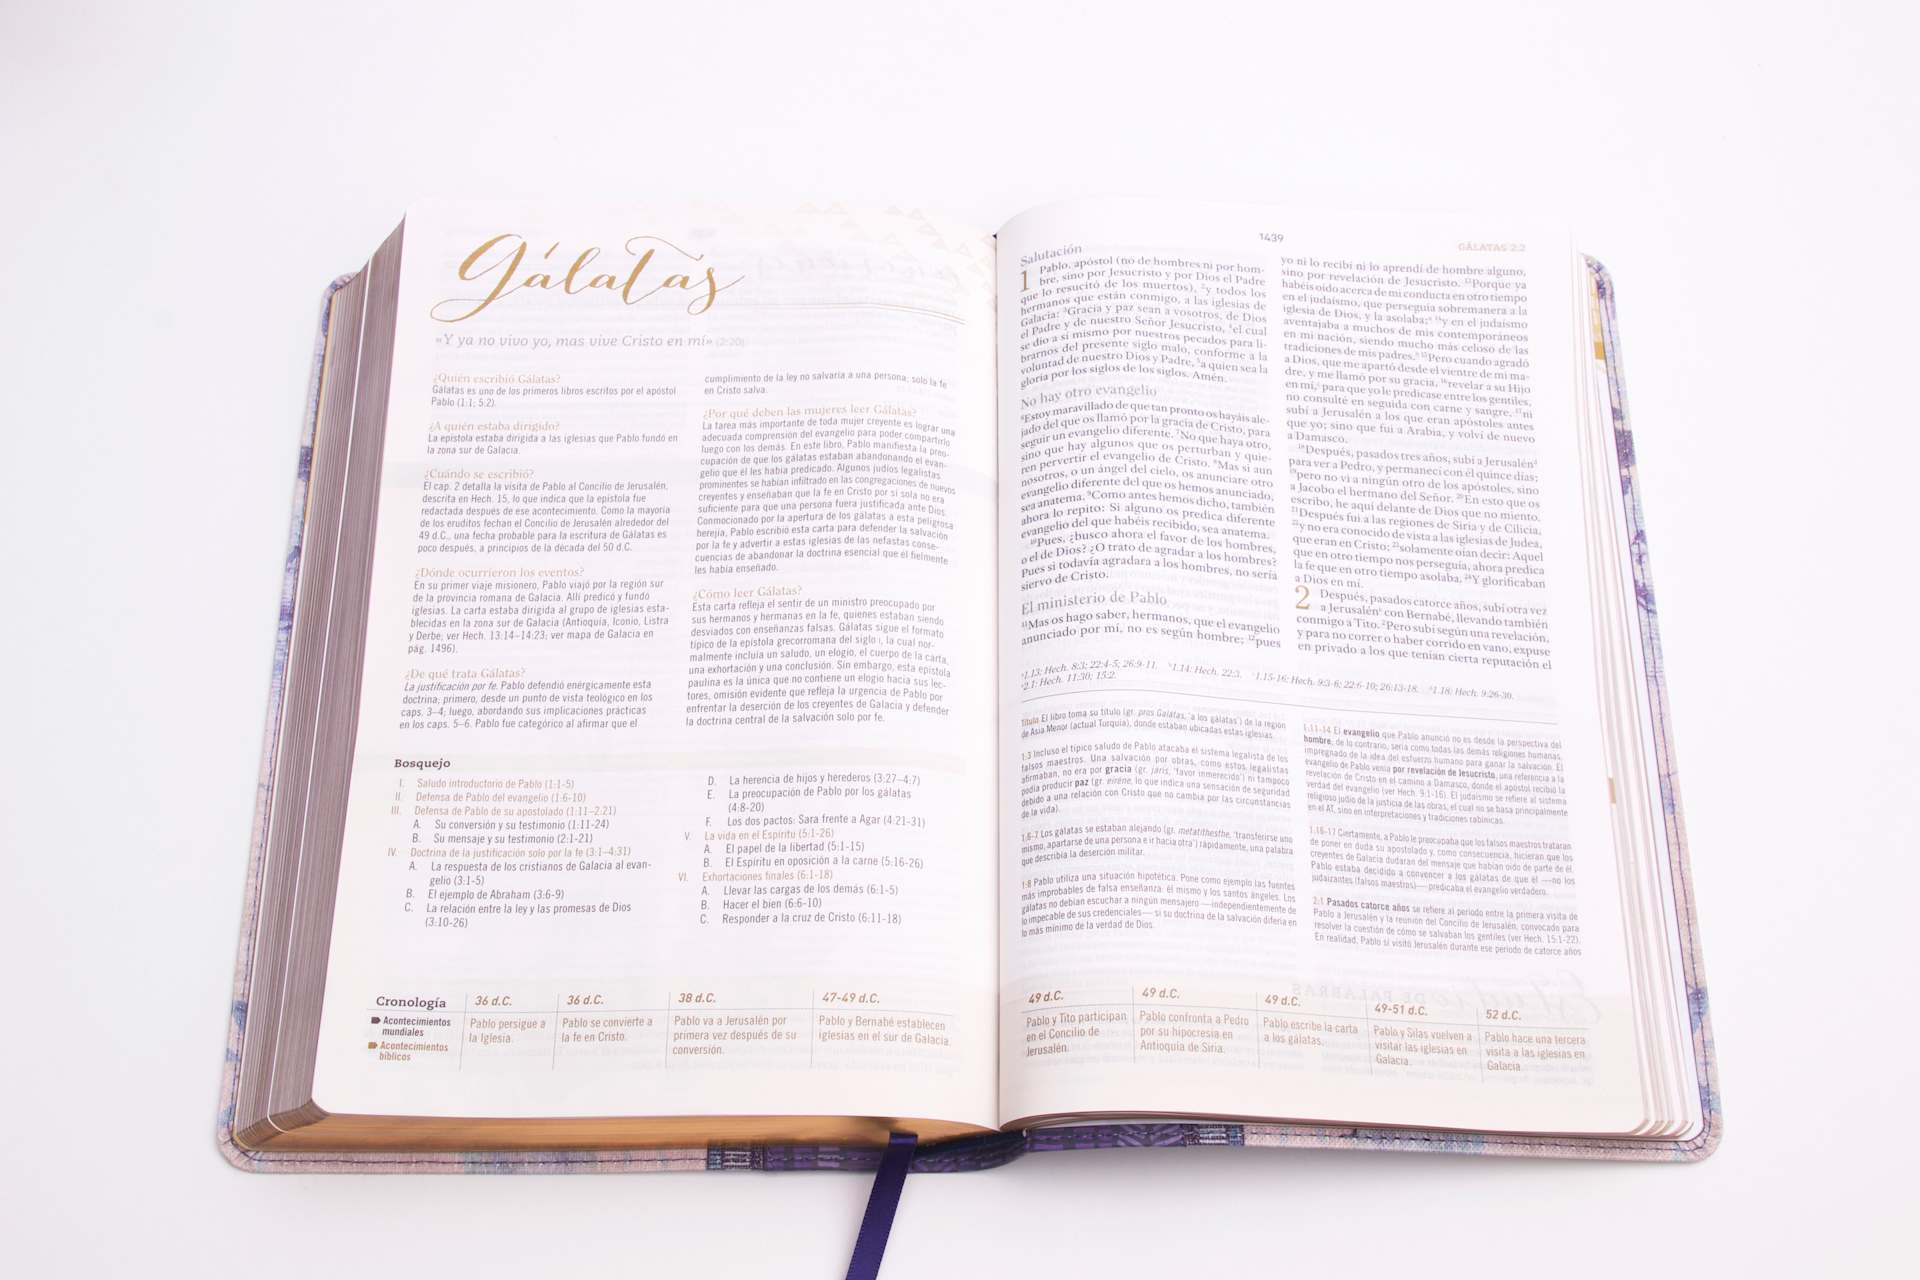 Gálatas
«Y ya no vivo yo, mas vive Cristo en mí» (2:20)
¿Quién escribió Gálatas?
Gálatas es uno de los primeros libros escritos por el apóstol
Pablo (1:1; 5:2).
¿A quién estaba dirigido?
La epístola estaba dirigida a las iglesias que Pablo fundó en
la zona sur de Galacia.
¿Cuándo se escribió?
El cap. 2 detalla la visita de Pablo al Concilio de Jerusalén,
descrita en Hech. 15, lo que indica que la epístola fue
redactada después de ese acontecimiento. Como la mayoría
de los eruditos fechan el Concilio de Jerusalén alrededor del
49 d.C., una fecha probable para la escritura de Gálatas es
poco después, a principios de la década del 50 d.C.
¿Dónde ocurrieron los eventos?
En su primer viaje misionero, Pablo viajó por la región sur
de la provincia romana de Galacia. Allí predicó y fundó
iglesias. La carta estaba dirigida al grupo de iglesias esta-
blecidas en la zona sur de Galacia (Antioquía, Iconio, Listra
y Derbe; ver Hech. 13:14–14:23; ver mapa de Galacia en
pág. 1496).
¿De qué trata Gálatas?
La justificación por fe. Pablo defendió enérgicamente esta
doctrina; primero, desde un punto de vista teológico en los
caps. 3–4; luego, abordando sus implicaciones prácticas
en los caps. 5–6. Pablo fue categórico al afirmar que el
cumplimiento de la ley no salvaría a una persona; solo la fe
en Cristo salva.
¿Por qué deben las mujeres leer Gálatas?
La tarea más importante de toda mujer creyente es lograr una
adecuada comprensión del evangelio para poder compartirlo
luego con los demás. En este libro, Pablo manifiesta la preo-
cupación de que los gálatas estaban abandonando el evan-
gelio que él les había predicado. Algunos judíos legalistas
prominentes se habían infiltrado en las congregaciones de nuevos
creyentes y enseñaban que la fe en Cristo por sí sola no era
suficiente para que una persona fuera justificada ante Dios.
Conmocionado por la apertura de los gálatas a esta peligrosa
herejía, Pablo escribió esta carta para defender la salvación
por la fe y advertir a estas iglesias de las nefastas conse-
cuencias de abandonar la doctrina esencial que él fielmente
les había enseñado.
¿Cómo leer Gálatas?
Esta carta refleja el sentir de un ministro preocupado por
sus hermanos y hermanas en la fe, quienes estaban siendo
desviados con enseñanzas falsas. Gálatas sigue el formato
típico de la epístola grecorromana del siglo I, la cual nor-
malmente incluía un saludo, un elogio, el cuerpo de la carta,
una exhortación y una conclusión. Sin embargo, esta epístola
paulina es la única que no contiene un elogio hacia sus lec-
tores, omisión evidente que refleja la urgencia de Pablo por
enfrentar la deserción de los creyentes de Galacia y defender
la doctrina central de la salvación solo por fe.
Bosquejo
I. Saludo introductorio de Pablo (1:1-5)
II. Defensa de Pablo del evangelio (1:6-10)
III. Defensa de Pablo de su apostolado (1:11–2:21)
A. Su conversión y su testimonio (1:11-24)
B. Su mensaje y su testimonio (2:1-21)
IV. Doctrina de la justificación solo por la fe (3:1–4:31)
A. La respuesta de los cristianos de Galacia al evan-
gelio (3:1-5)
B. El ejemplo de Abraham (3:6-9)
C. La relación entre la ley y las promesas de Dios
(3:10-26)
D. La herencia de hijos y herederos (3:27–4:7)
E. La preocupación de Pablo por los gálatas
(4:8-20)
F. Los dos pactos: Sara frente a Agar (4:21-31)
V. La vida en el Espíritu (5:1-26)
A. El papel de la libertad (5:1-15)
B. El Espíritu en oposición a la carne (5:16-26)
VI. Exhortaciones finales (6:1-18)
A. Llevar las cargas de los demás (6:1-5)
B. Hacer el bien (6:6-10)
C. Responder a la cruz de Cristo (6:11-18)
Cronología
Acontecimientos
mundiales
Acontecimientos
bíblicos
36 d.C.
Pablo persigue a
la Iglesia.
36 d.C.
Pablo se convierte a
la fe en Cristo.
38 d.C.
Pablo va a Jerusalén por
primera vez después de su
conversión.
47-49 d.C.
Pablo y Bernabé establecen
iglesias en el sur de Galacia.
1439
GÁLATAS 2:2
Salutación
1 Pablo, apóstol (no de hombres ni por hom-
bre, sino por Jesucristo y por Dios el Padre
que lo resucitó de los muertos), ²y todos los
hermanos que están conmigo, a las iglesias de
Galacia: ³Gracia y paz sean a vosotros, de Dios
el Padre y de nuestro Señor Jesucristo, ⁴el cual
se dio a sí mismo por nuestros pecados para li-
brarnos del presente siglo malo, conforme a la
voluntad de nuestro Dios y Padre, ⁵a quien sea la
gloria por los siglos de los siglos. Amén.
No hay otro evangelio
⁶Estoy maravillado de que tan pronto os hayáis ale-
jado del que os llamó por la gracia de Cristo, para
seguir un evangelio diferente. ⁷No que haya otro,
sino que hay algunos que os perturban y quie-
ren pervertir el evangelio de Cristo. ⁸Mas si aun
nosotros, o un ángel del cielo, os anunciare otro
evangelio diferente del que os hemos anunciado,
sea anatema. ⁹Como antes hemos dicho, también
ahora lo repito: Si alguno os predica diferente
evangelio del que habéis recibido, sea anatema.
¹⁰Pues, ¿busco ahora el favor de los hombres,
o el de Dios? ¿O trato de agradar a los hombres?
Pues si todavía agradara a los hombres, no sería
siervo de Cristo.
El ministerio de Pablo
¹¹Mas os hago saber, hermanos, que el evangelio
anunciado por mí, no es según hombre; ¹²pues
yo ni lo recibí ni lo aprendí de hombre alguno,
sino por revelación de Jesucristo. ¹³Porque ya
habéis oído acerca de mi conducta en otro tiempo
en el judaísmo, que perseguía sobremanera a la
iglesia de Dios, y la asolaba;ᵃ ¹⁴y en el judaísmo
aventajaba a muchos de mis contemporáneos
en mi nación, siendo mucho más celoso de las
tradiciones de mis padres.ᵇ ¹⁵Pero cuando agradó
a Dios, que me apartó desde el vientre de mi ma-
dre, y me llamó por su gracia, ¹⁶revelar a su Hijo
en mí,ᶜ para que yo le predicase entre los gentiles,
no consulté en seguida con carne y sangre, ¹⁷ni
subí a Jerusalén a los que eran apóstoles antes
que yo; sino que fui a Arabia, y volví de nuevo
a Damasco.
¹⁸Después, pasados tres años, subí a Jerusalénᵈ
para ver a Pedro, y permanecí con él quince días;
¹⁹pero no vi a ningún otro de los apóstoles, sino
a Jacobo el hermano del Señor. ²⁰En esto que os
escribo, he aquí delante de Dios que no miento.
²¹Después fui a las regiones de Siria y de Cilicia,
²²y no era conocido de vista a las iglesias de Judea,
que eran en Cristo; ²³solamente oían decir: Aquel
que en otro tiempo nos perseguía, ahora predica
la fe que en otro tiempo asolaba. ²⁴Y glorificaban
a Dios en mí.
2 Después, pasados catorce años, subí otra vez
a Jerusalénᵉ con Bernabé, llevando también
conmigo a Tito. ²Pero subí según una revelación,
y para no correr o haber corrido en vano, expuse
en privado a los que tenían cierta reputación el
ᵃ1.13: Hech. 8:3; 22:4-5; 26:9-11. ᵇ1.14: Hech. 22:3. ᶜ1.15-16: Hech. 9:3-6; 22:6-10; 26:13-18. ᵈ1.18: Hech. 9:26-30.
ᵉ2.1: Hech. 11:30; 15:2.
Título El libro toma su título (gr. pros Galatas, 'a los gálatas') de la región
de Asia Menor (actual Turquía), donde estaban ubicadas estas iglesias.
1:-3 Incluso el típico saludo de Pablo atacaba el sistema legalista de los
falsos maestros. Una salvación por obras, como estos legalistas
afirmaban, no era por gracia (gr. jaris, 'favor inmerecido') ni tampoco
podía producir paz (gr. eirēnē, lo que indica una sensación de seguridad
debido a una relación con Cristo que no cambia por las circunstancias
de la vida).
1:6-7 Los gálatas se estaban alejando (gr. metatithesthe, 'transferirse uno
mismo, apartarse de una persona e ir hacia otra') rápidamente, una palabra
que describía la deserción militar.
1:8 Pablo utiliza una situación hipotética. Pone como ejemplo las fuentes
más improbables de falsa enseñanza: él mismo y los santos ángeles. Los
gálatas no debían escuchar a ningún mensajero —independientemente de
lo impecable de sus credenciales— si su doctrina de la salvación difería en
lo más mínimo de la verdad de Dios.
1:11-14 El evangelio que Pablo anunció no es desde la perspectiva del
hombre, de lo contrario, sería como todas las demás religiones humanas,
impregnado de la idea del esfuerzo humano para ganar la salvación. El
evangelio de Pablo venía por revelación de Jesucristo, una referencia a la
revelación de Cristo en el camino a Damasco, donde el apóstol recibió la
verdad del evangelio (ver Hech. 9:1-16). El judaísmo se refiere al sistema
religioso judío de la justicia de las obras, el cual no se basa principalmente
en el AT, sino en interpretaciones y tradiciones rabínicas.
1:16-17 Ciertamente, a Pablo le preocupaba que los falsos maestros trataran
de poner en duda su apostolado y, como consecuencia, hicieran que los
creyentes de Galacia dudaran del mensaje que habían oído de parte de él.
Pablo estaba decidido a convencer a los gálatas de que él —no los
judaizantes (falsos maestros)— predicaba el evangelio verdadero.
2:1 Pasados catorce años se refiere al período entre la primera visita de
Pablo a Jerusalén y la reunión del Concilio de Jerusalén, convocado para
resolver la cuestión de cómo se salvaban los gentiles (ver Hech. 15:1-22).
En realidad, Pablo sí visitó Jerusalén durante ese período de catorce años
49 d.C.
Pablo y Tito participan
en el Concilio de
Jerusalén.
49 d.C.
Pablo confronta a Pedro
por su hipocresía en
Antioquía de Siria.
49 d.C.
Pablo escribe la carta
a los gálatas.
49-51 d.C.
Pablo y Silas vuelven a
visitar las iglesias en
Galacia.
52 d.C.
Pablo hace una tercera
visita a las iglesias en
Galacia.